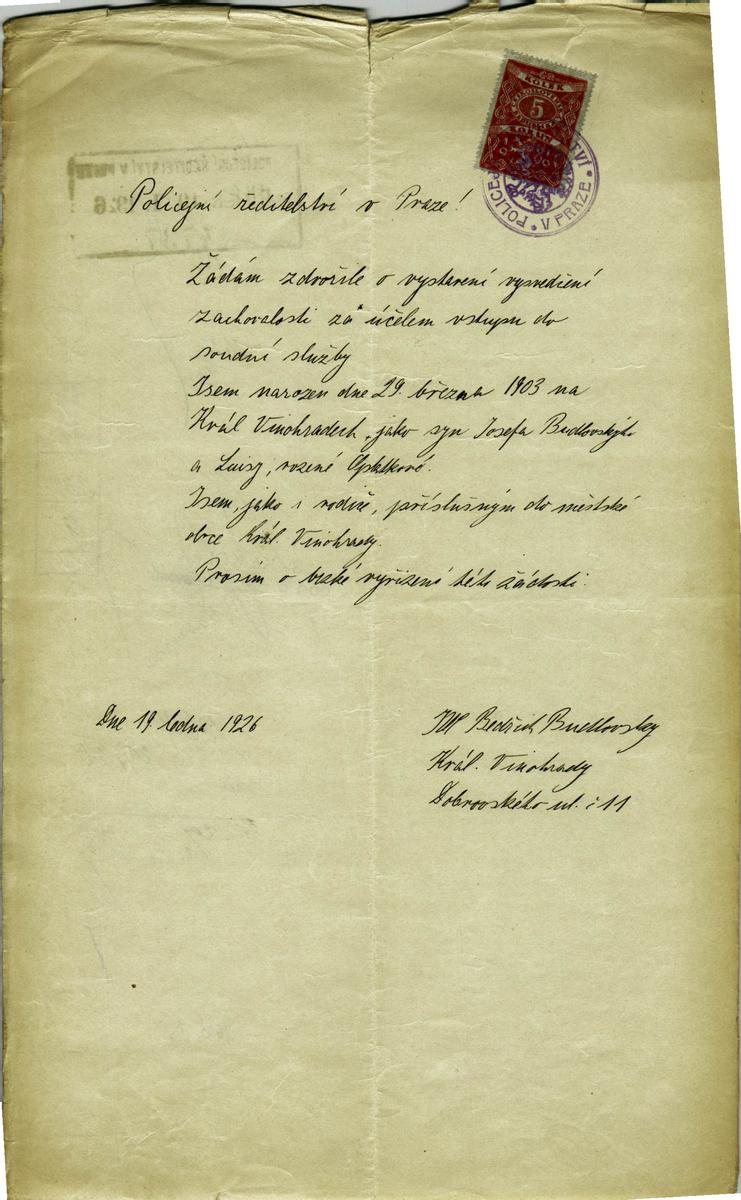 KOLEK
5
KORUN
POLICE
V PRAZE
Policejní ředitelství v Praze!
Žádám zdvořile o vystavení vysvědčení
zachovalosti za účelem vstupu do
soudní služby
Jsem narozen dne 29. března 1903 na
Král Vinohradech, jako syn Josefa Budlovského
a Luisy, rozené
Jsem, jako i rodiče, příslušným do městské
obce Král. Vinohrady.
Prosím o brzké vyřízení této žádosti.
Dne 19. ledna 1926
Bedřich Budlovsky
Král. Vinohrady
Dobrovského ul. č 11